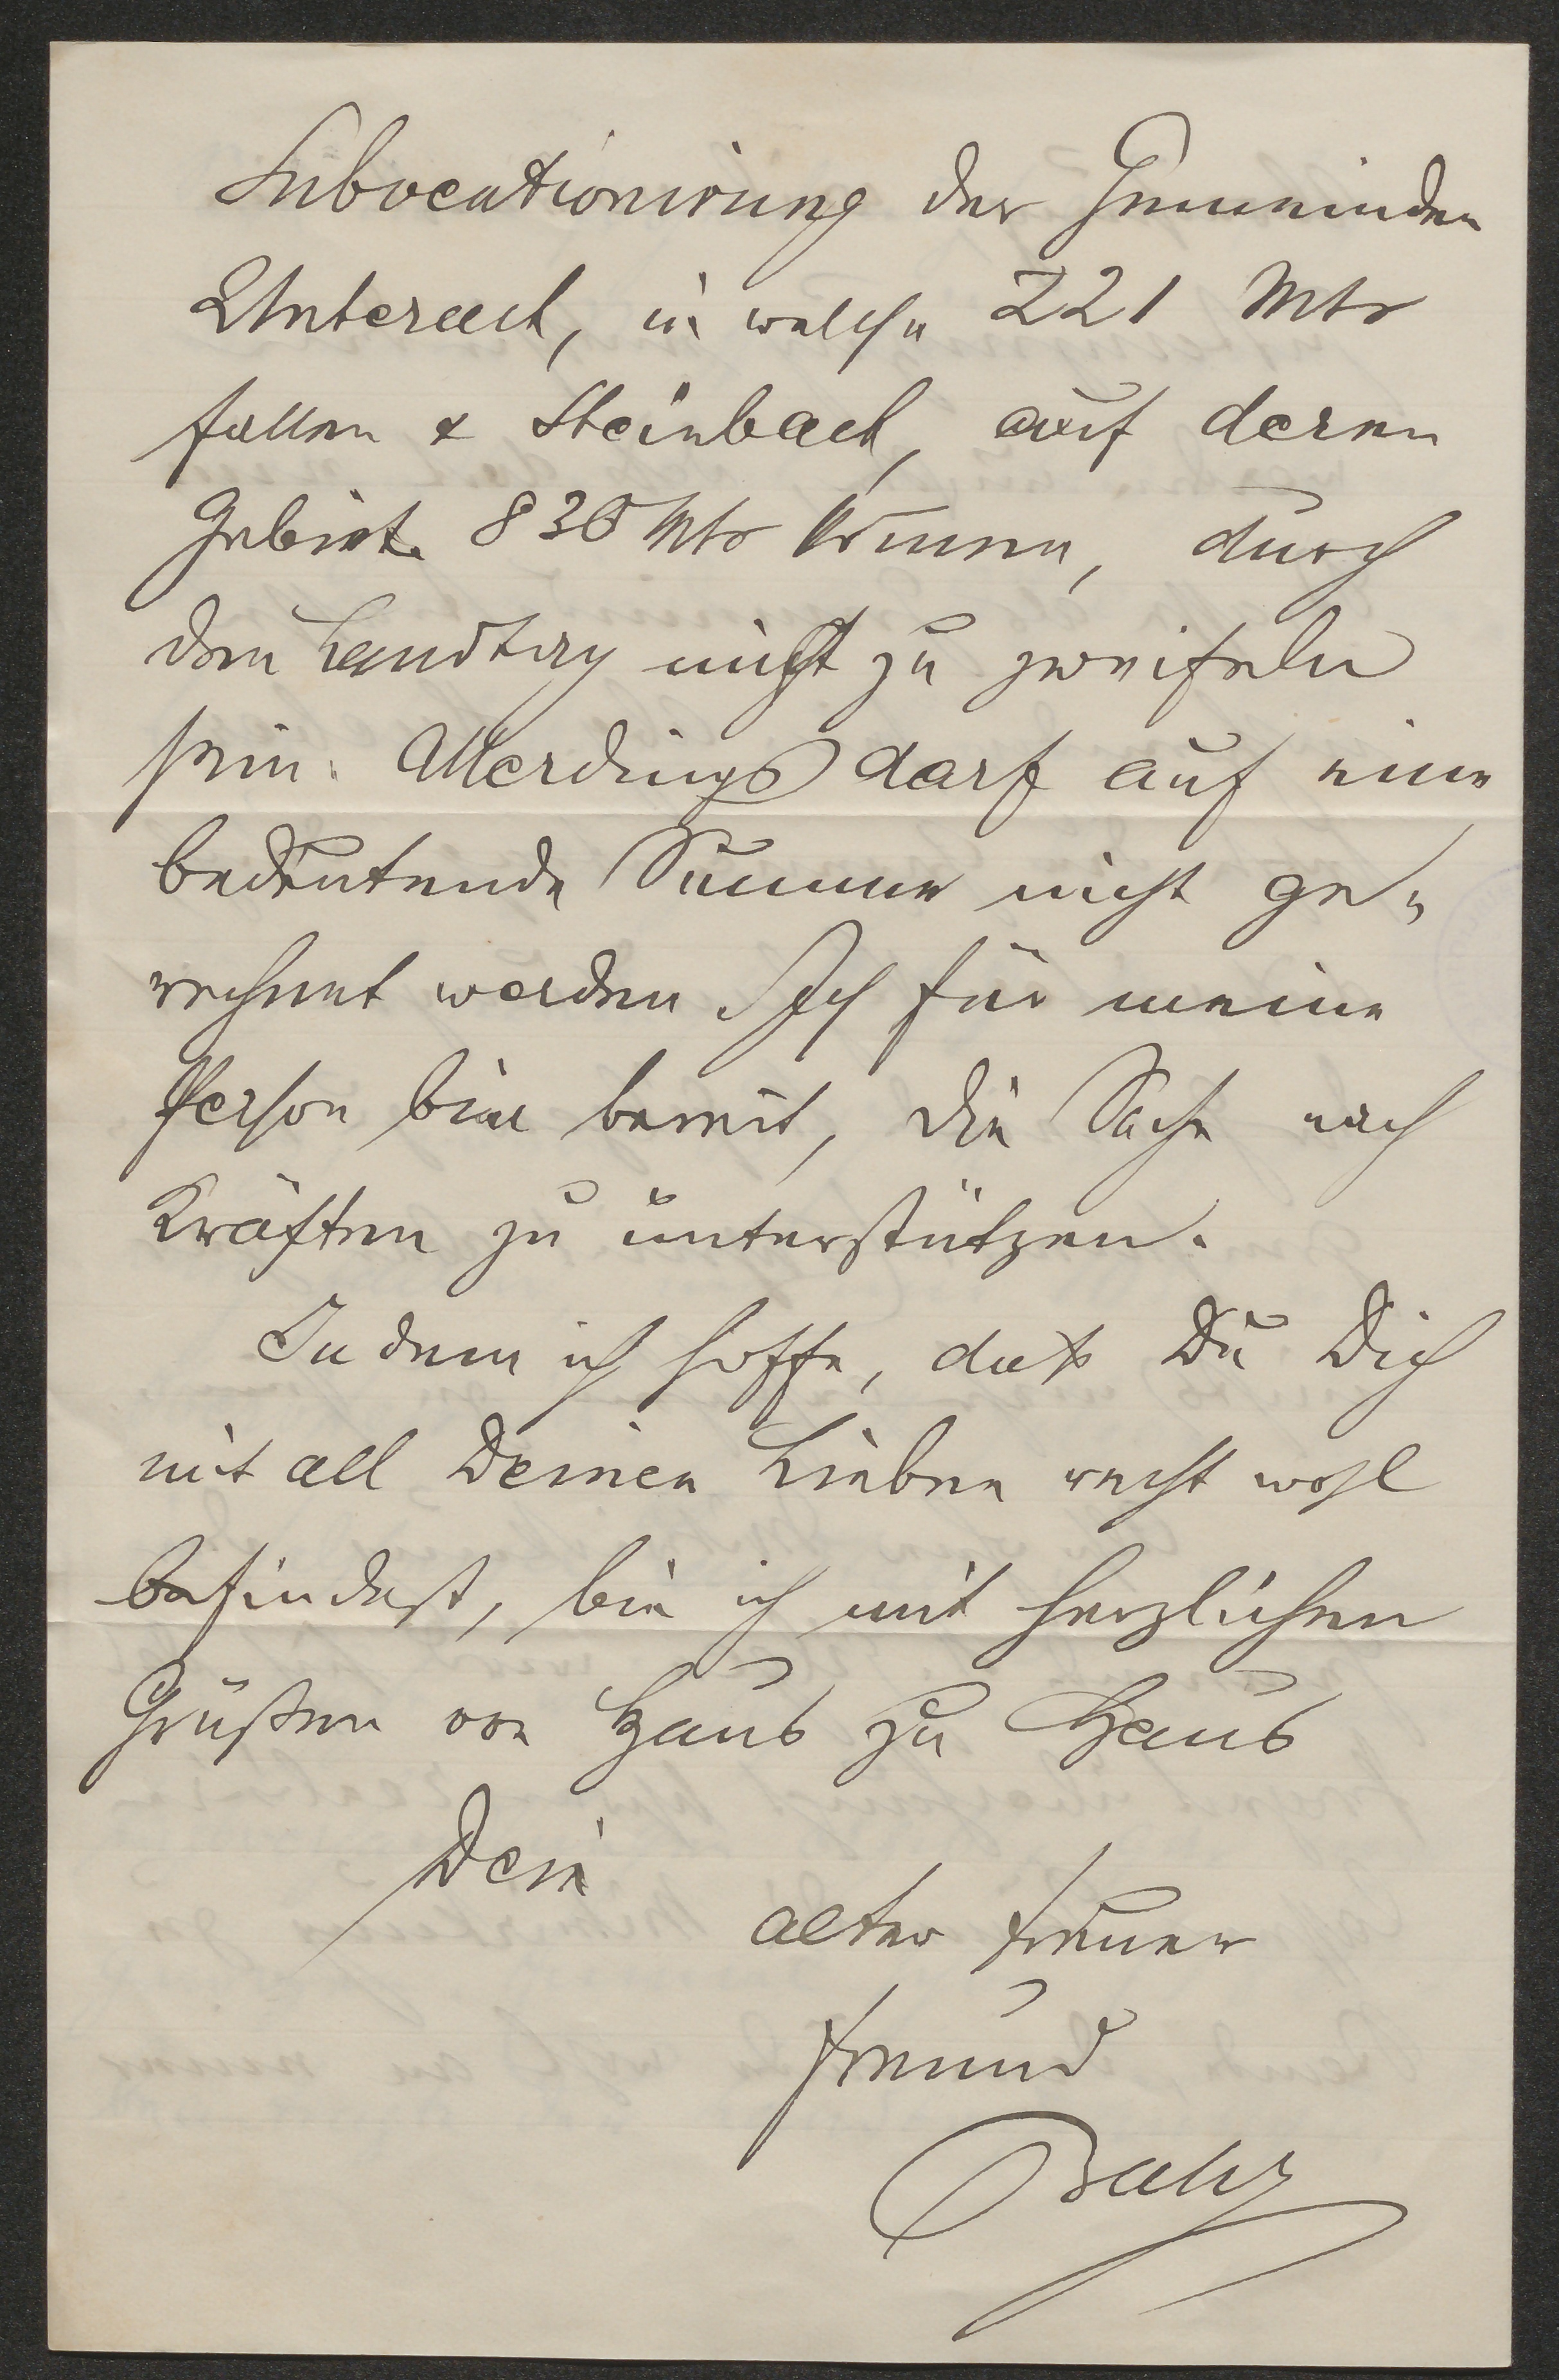 Subventionirung der Gemeinden
Unterach, in welche 221 Mtr
fallen & Steinbach, auf deren
Gebiet 830 Mtr kommen, durch
den Landtag nicht zu zweifeln
sein. Allerdings darf auf eine
bedeutende Summe nicht ge-
rechnet werden. Ich für meine
Person bin bereit, die Sache nach
Kräften zu unterstützen.
Indem ich hoffe, daß Du Dich
mit all Deinen Lieben recht wohl
befindest, bin ich mit herzlichen
Grüßen von Haus zu Haus
Dein
alter treuer
Freund
Bahr